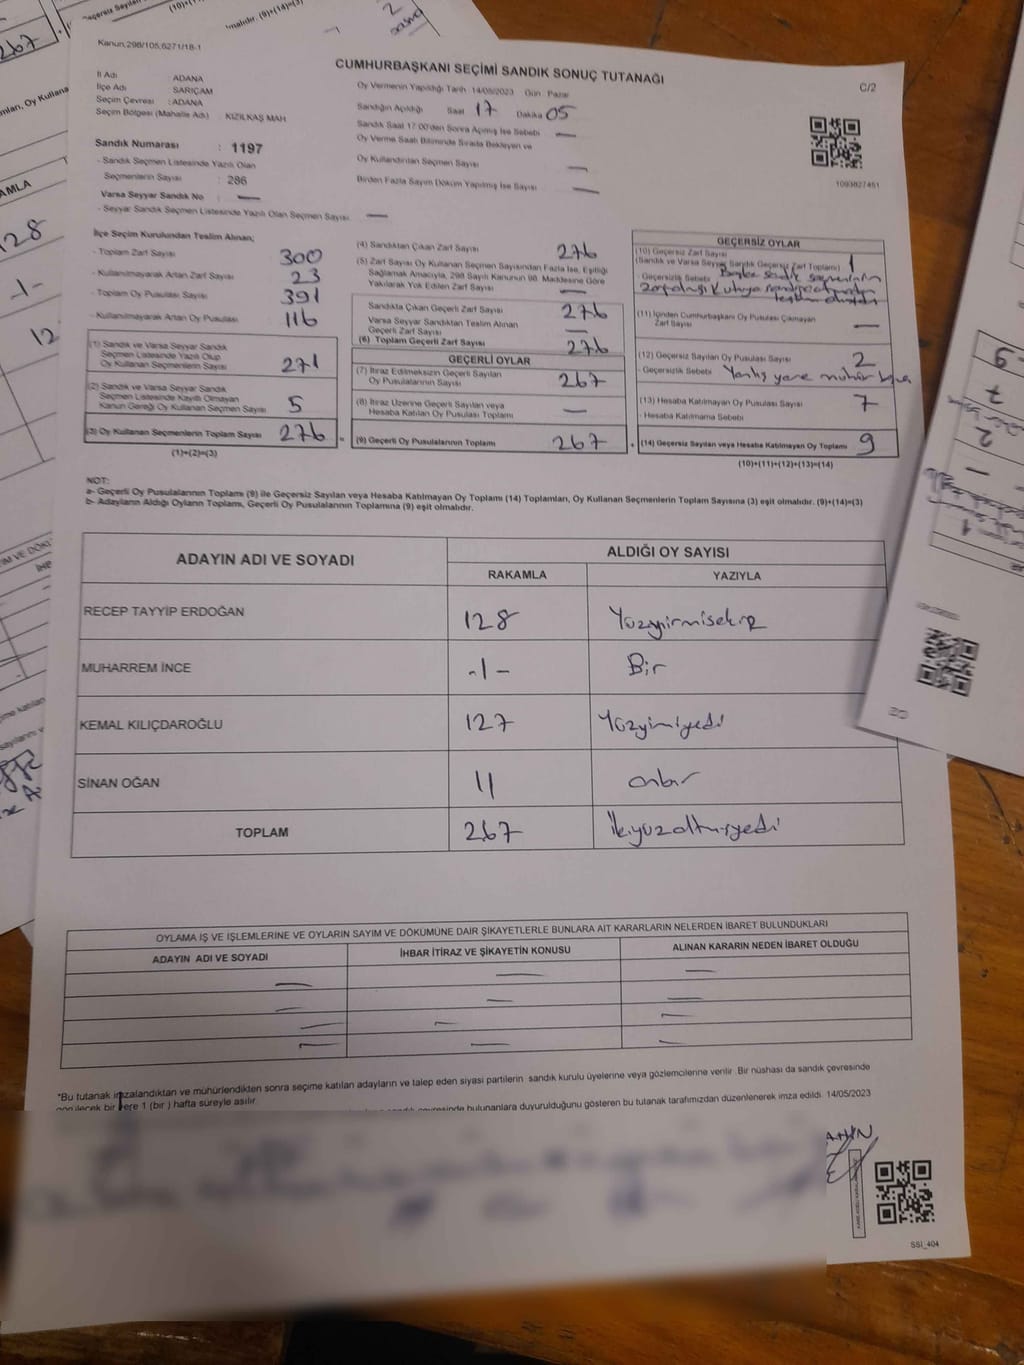 Kanun,298/105,6271/18-1
CUMHURBAŞKANI SEÇİMİ SANDIK SONUÇ TUTANAĞI
C/2
İl Adı : ADANA
İlçe Adı : SARIÇAM
Seçim Çevresi : ADANA
Seçim Bölgesi (Mahalle Adı) : KIZILKAŞ MAH
Sandık Numarası : 1197
- Sandık Seçmen Listesinde Yazılı Olan
Seçmenlerin Sayısı : 286
Varsa Seyyar Sandık No : —
- Seyyar Sandık Seçmen Listesinde Yazılı Olan Seçmen Sayısı —
Oy Vermenin Yapıldığı Tarih 14/05/2023 Gün Pazar
Sandığın Açıldığı Saat 17 Dakika 05
Sandık Saat 17:00'den Sonra Açılmış İse Sebebi —
Oy Verme Saati Bitiminde Sırada Bekleyen ve
Oy Kullandırılan Seçmen Sayısı —
Birden Fazla Sayım Döküm Yapılmış İse Sayısı —
1093827451
İlçe Seçim Kurulundan Teslim Alınan;
- Toplam Zarf Sayısı 300
- Kullanılmayarak Artan Zarf Sayısı 23
- Toplam Oy Pusulası Sayısı 391
- Kullanılmayarak Artan Oy Pusulası 116
(1) Sandık ve Varsa Seyyar Sandık
Seçmen Listesinde Yazılı Olup
Oy Kullanan Seçmenlerin Sayısı 271
(2) Sandık ve Varsa Seyyar Sandık
Seçmen Listesinde Kayıtlı Olmayan
Kanun Gereği Oy Kullanan Seçmen Sayısı 5
(3) Oy Kullanan Seçmenlerin Toplam Sayısı 276
(1)+(2)=(3)
(4) Sandıktan Çıkan Zarf Sayısı 276
(5) Zarf Sayısı Oy Kullanan Seçmen Sayısından Fazla İse, Eşitliği
Sağlamak Amacıyla, 298 Sayılı Kanunun 98. Maddesine Göre
Yakılarak Yok Edilen Zarf Sayısı —
Sandıkta Çıkan Geçerli Zarf Sayısı 276
Varsa Seyyar Sandıktan Teslim Alınan
Geçerli Zarf Sayısı —
(6) Toplam Geçerli Zarf Sayısı 276
GEÇERLİ OYLAR
(7) İtiraz Edilmeksizin Geçerli Sayılan
Oy Pusulalarının Sayısı 267
(8) İtiraz Üzerine Geçerli Sayılan veya
Hesaba Katılan Oy Pusulası Toplamı —
(9) Geçerli Oy Pusulalarının Toplamı 267
GEÇERSİZ OYLAR
(10) Geçersiz Zarf Sayısı 1
(Sandık ve Varsa Seyyar Sandık Geçersiz Zarf Toplamı)
- Geçersizlik Sebebi Başka sandık seçmeninin
(11) İçinden Cumhurbaşkanı Oy Pusulası Çıkmayan
Zarf Sayısı —
(12) Geçersiz Sayılan Oy Pusulası Sayısı 2
- Geçersizlik Sebebi Yanlış yere mühür
(13) Hesaba Katılmayan Oy Pusulası Sayısı 7
- Hesaba Katılmama Sebebi
(14) Geçersiz Sayılan veya Hesaba Katılmayan Oy Toplamı 9
(10)+(11)+(12)+(13)=(14)
NOT:
a- Geçerli Oy Pusulalarının Toplamı (9) ile Geçersiz Sayılan veya Hesaba Katılmayan Oy Toplamı (14) Toplamları, Oy Kullanan Seçmenlerin Toplam Sayısına (3) eşit olmalıdır. (9)+(14)=(3)
b- Adayların Aldığı Oyların Toplamı, Geçerli Oy Pusulalarının Toplamına (9) eşit olmalıdır.
ADAYIN ADI VE SOYADI
ALDIĞI OY SAYISI
RAKAMLA YAZIYLA
RECEP TAYYİP ERDOĞAN 128 Yüzyirmisekiz
MUHARREM İNCE -1- Bir
KEMAL KILIÇDAROĞLU 127 Yüzyimiyedi
SİNAN OĞAN 11 onbir
TOPLAM 267 ikiyüzaltmışyedi
OYLAMA İŞ VE İŞLEMLERİNE VE OYLARIN SAYIM VE DÖKÜMÜNE DAİR ŞİKAYETLERLE BUNLARA AİT KARARLARIN NELERDEN İBARET BULUNDUKLARI
ADAYIN ADI VE SOYADI İHBAR İTİRAZ VE ŞİKAYETİN KONUSU ALINAN KARARIN NEDEN İBARET OLDUĞU
— — —
— — —
— — —
— — —
*Bu tutanak imzalandıktan ve mühürlendikten sonra seçime katılan adayların ve talep eden siyasi partilerin sandık kurulu üyelerine veya gözlemcilerine verilir. Bir nüshası da sandık çevresinde
görülecek bir yere 1 (bir) hafta süreyle asılır.
sandık çevresinde bulunanlara duyurulduğunu gösteren bu tutanak tarafımızdan düzenlenerek imza edildi. 14/05/2023
SSI_404